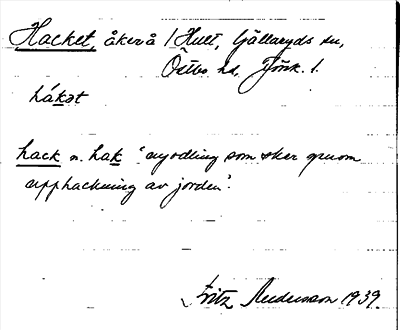 Hacket, åkerå i Hult, Gällaryds sn,
Östbo hd. Jönk. l.
hákət
hack n. hak "nyodling som sker genom
upphackning av jorden".
Fritz Andersson 1939.